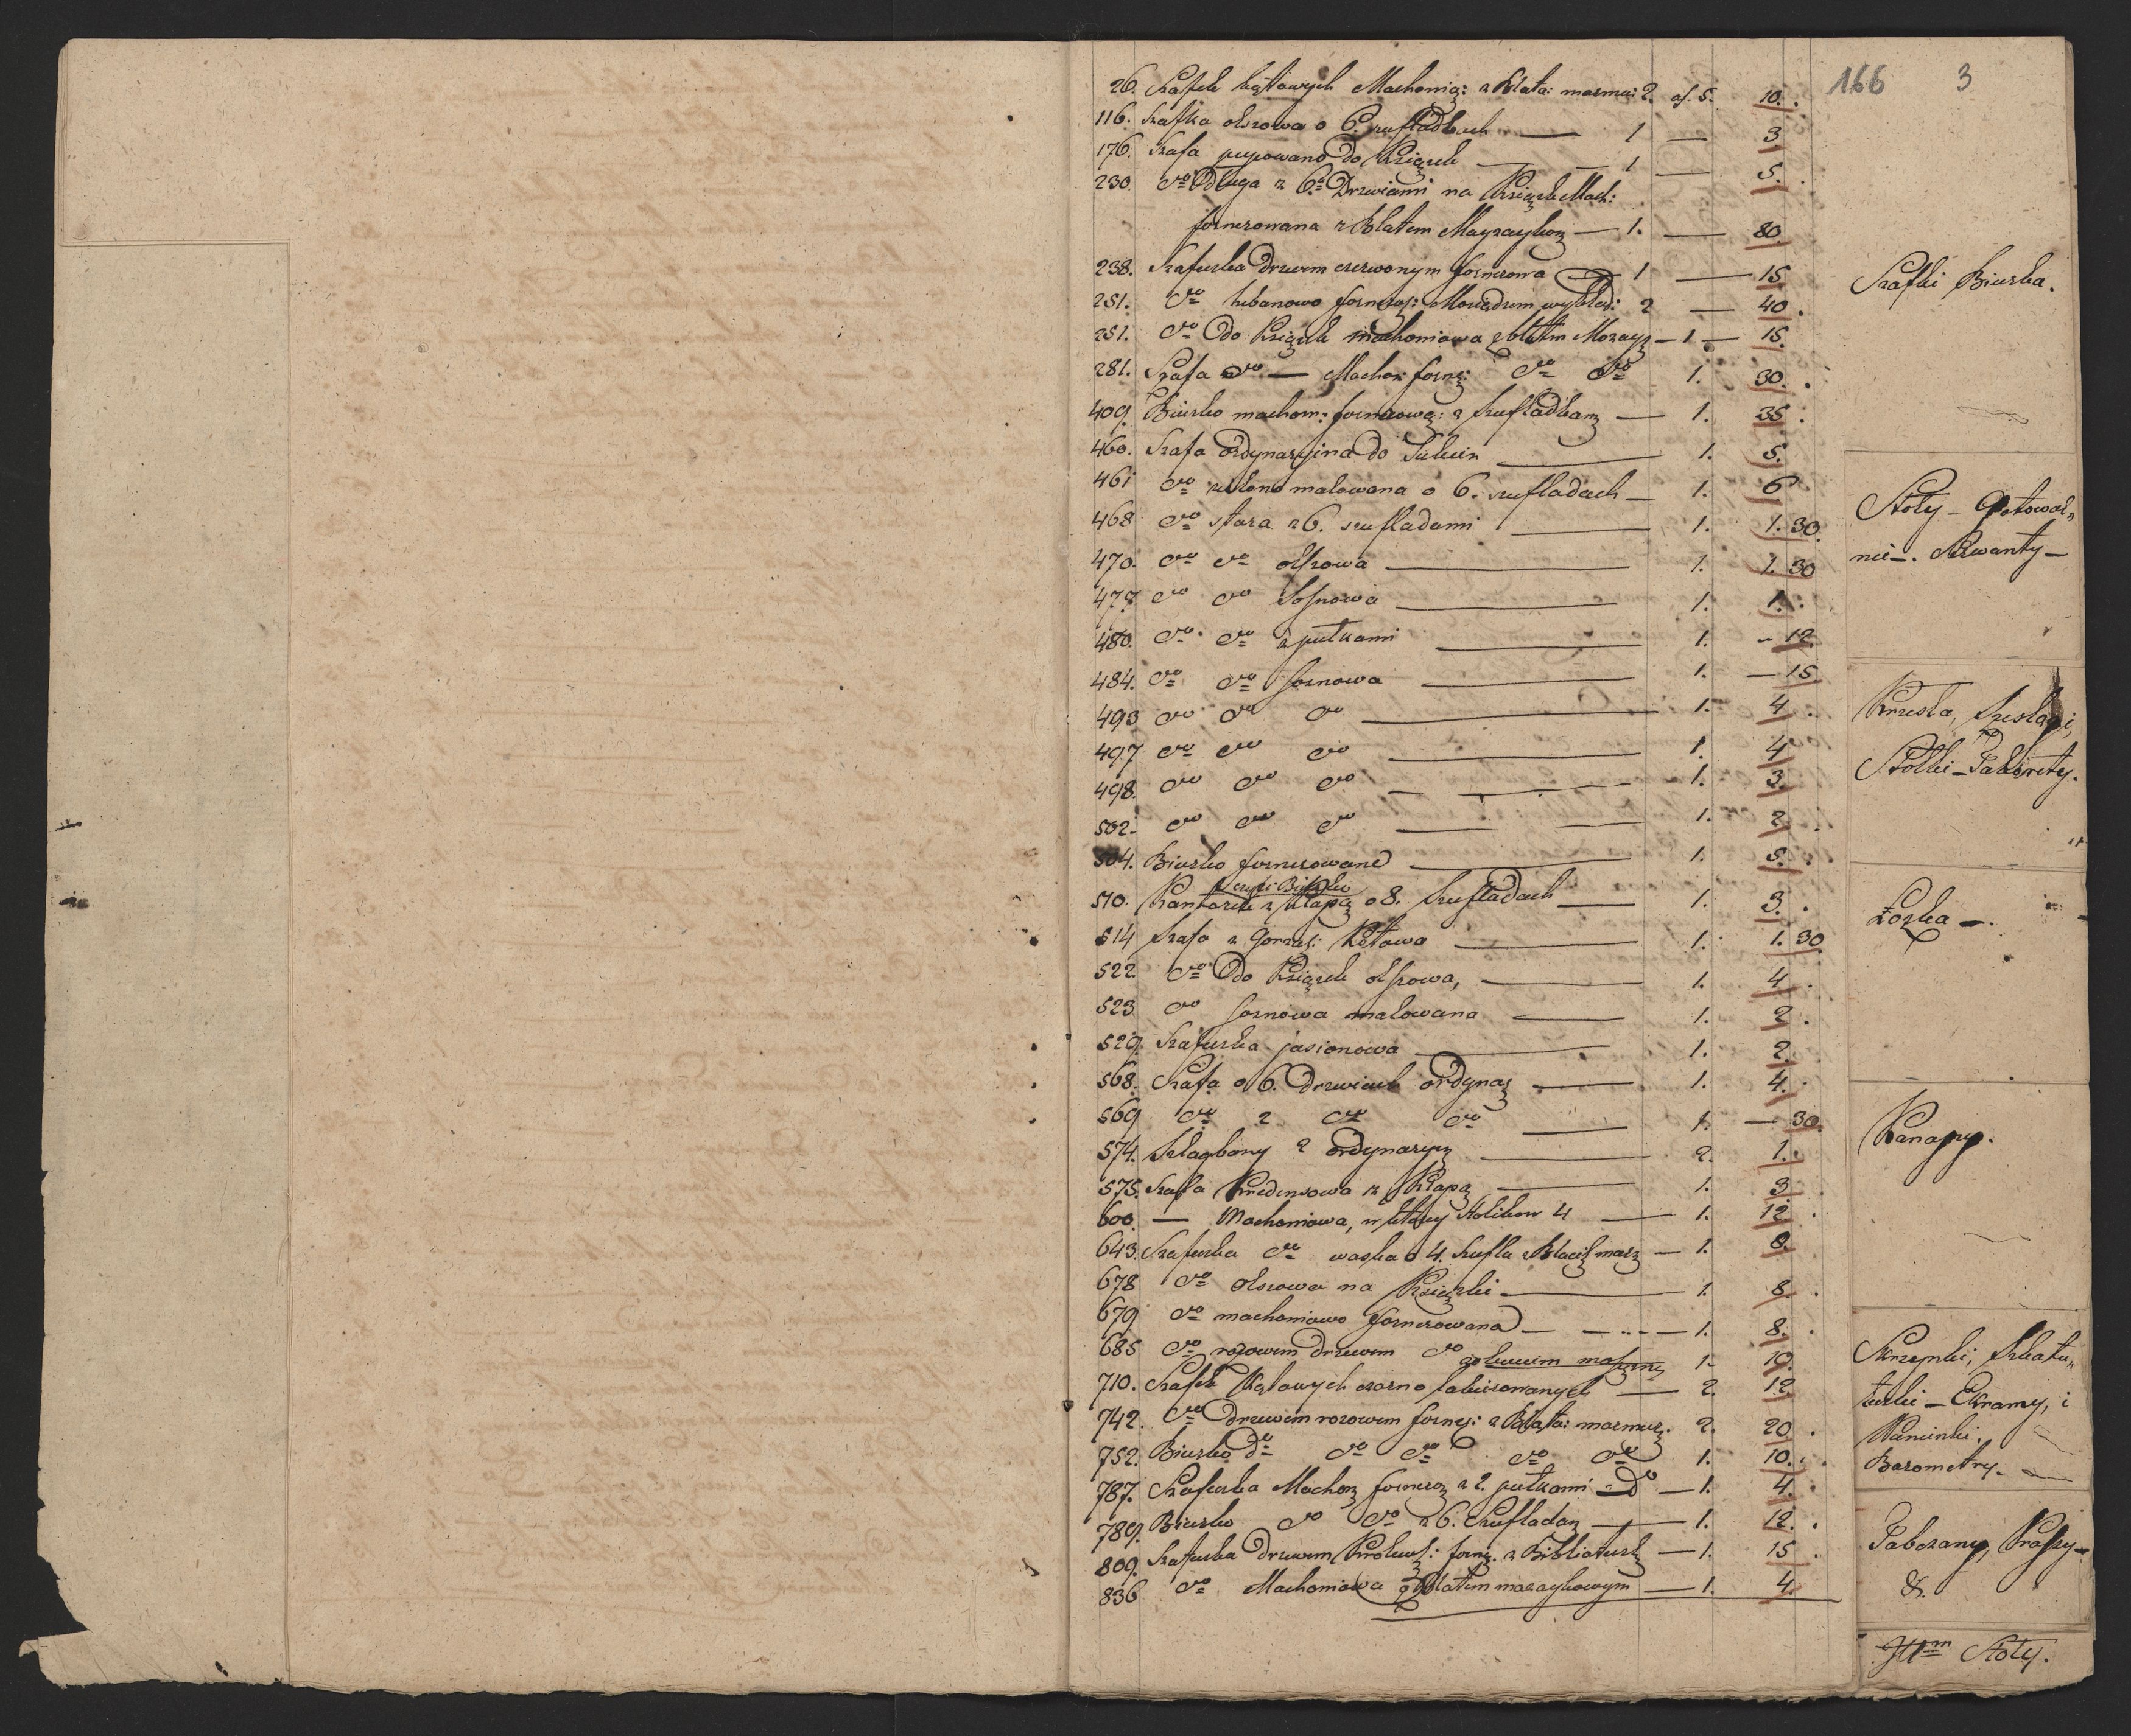 166 3
26. Szafek kątowych Machonią: z Blata: marmu: 2. af. 5. 10.
116. Szafka olszowa o 6. szufladkach — 1 — 3
176. Szafa pupowano do Książek — 1 — 5.
230. dto Długa z 6. Drzwiami na Książek Mach:
fornerowana z Blatem Mayzaykow — 1. — 80.
238. Szafuska drzewem czerwonym fornerowa — 1 — 15
251. dto hebanowo forneroz: Mosiądzem wykład: 2 — 40.
251. dto do Książek machoniowa z blatem Mozayz — 1 — 15.
281. Szafa dto — Machon: forne: dto dto 1. 30.
409. Biurko machon: fornerową: z Szufladkamz — 1. 35.
460. Szafa ordynaryina do Sukien — 1. 5.
461 dto zielono malowana o 6. szufladach — 1. 6
468 dto stara z 6. szufladami — 1. 1. 30.
470. dto dto olszowa — 1. 1. 30
477 dto dto Sosnowa — 1. 1.
480. dto dto z pułkami — 1. — 12.
484. dto dto sosnowa — 1. — 15
493 dto dto dto — 1. 4.
497 dto dto dto — 1. 4
498. dto dto dto — 1. 3.
502. dto dto dto — 1. 2.
504. Biurko fornerowane — 1. 5.
czyli Biurko
510. Kantorek z Klapą o 8. Szufladach — 1. 3.
514 Szafa z gorzel: Kętowa — 1. 1. 30
522 dto do Książek olszowa, — 1. 4.
523 dto sosnowa malowana — 1. 2.
529. Szafuska jasionowa — 1. 2.
568. Szafa o 6. Drzwiach ordynaz — 1. 4.
569 dto 2 dto dto — 1. — 30.
574. Szlagbany 2 ordynaryz — 2. 1.
575. Szafa Kredensowa z Klapą — 1. 3
600. — Machoniowa, w ktory Stolikow 4 — 1. 12.
643. Szafuska dto waska o 4. Szufla z Blacik marz — 1. 8.
678 dto olszowa na Książki — 1. 8.
679 dto machoniowo fornerowana — 1. 8.
685 dto rozowem drzewem dto 1. 10.
710. Szafek Kątowych czarno lakierowanych — 2. 12
742. dto drzewem rozowem forner: z Blata: marmur. 2. 20.
752. Biurko do dto dto dto dto 1. 10.
787. Szafuska Machon fornerow z 2. pułkami do — 1. 4.
789. Biurko dto dto z 6. Szufladaz — 1. 12.
809. Szafuska drzewem Krolews: forne. z Bibliotusz — 1. 15.
836 dto Machoniowa z Blatem mozaykowym — 1. 4.
Szafki Biurka.
Stoły – Gotowal„
nie –. Serwanty –
Krzesła, Szeslągi,
Stołki – Taborety.
Łozka –.
Kanapy.
Skrzynki, Szkatu„
łuski – Ekramy, i
Kominki.
Barometry.
Taborany, Praszy–
&.
Itm Stoły.